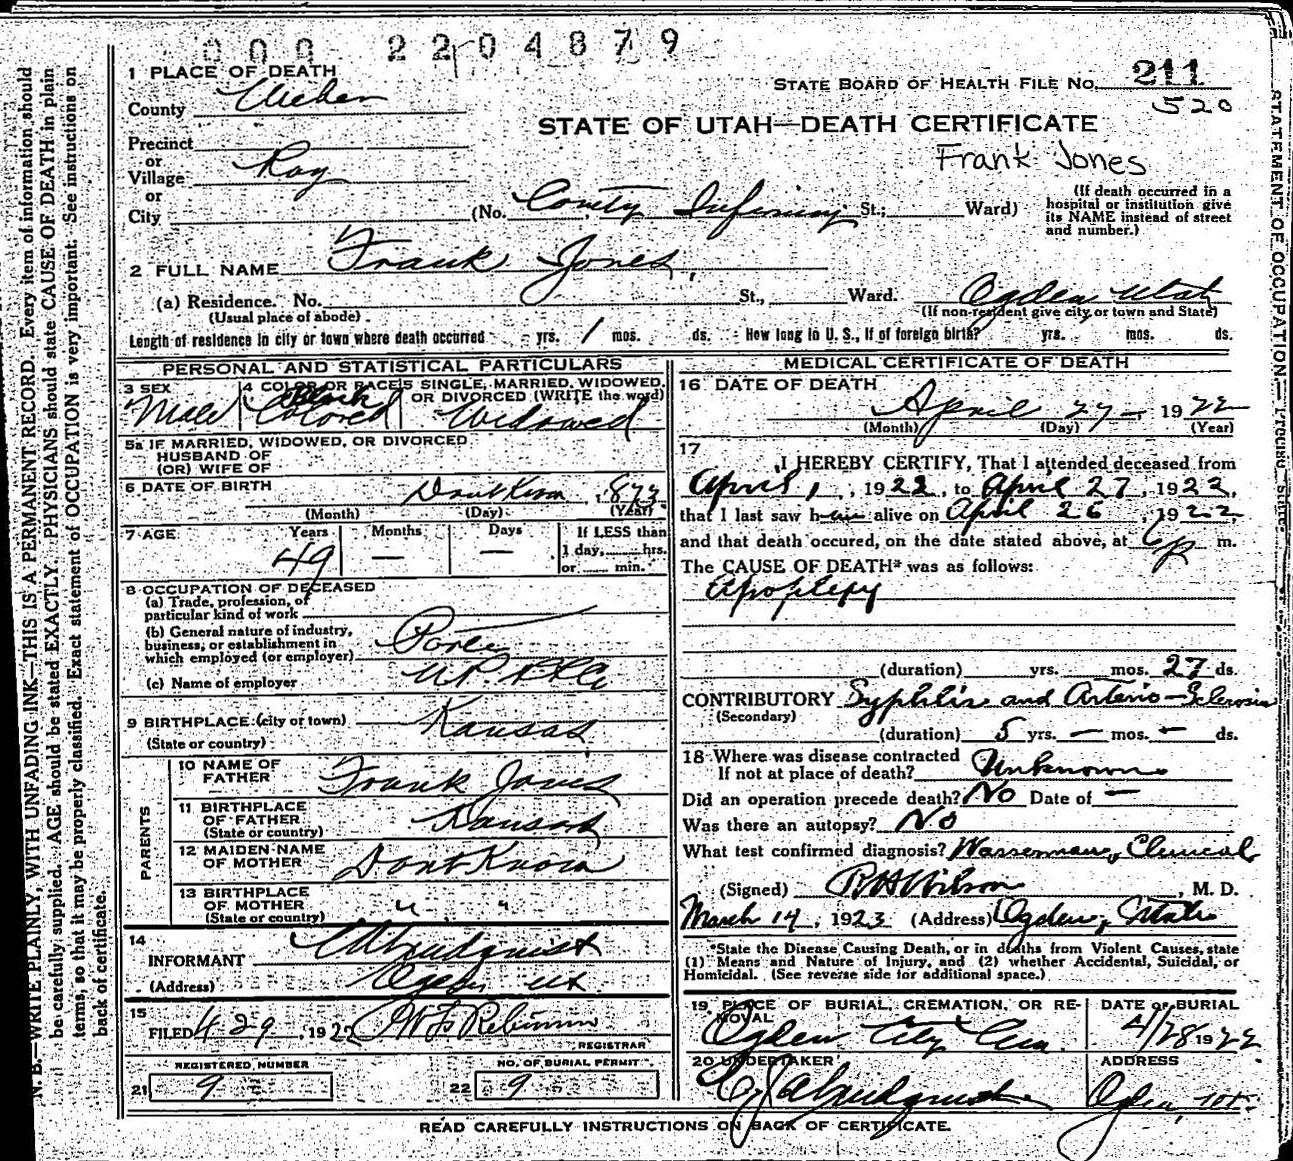 000 2204879
1 PLACE OF DEATH
STATE BOARD OF HEALTH FILE NO. 211
County Weber
520
STATE OF UTAH—DEATH CERTIFICATE
Precinct
or
Village Roy
Frank Jones
or
City
(No. County Infirmary St.; Ward)
(If death occurred in a
hospital or institution give
its NAME instead of street
and number.)
2 FULL NAME Frank Jones
(a) Residence. No. St., Ward. Ogden Utah
(Usual place of abode)
(If non-resident give city or town and State)
Length of residence in city or town where death occurred yrs. 1 mos. ds. How long in U. S., if of foreign birth? yrs. mos. ds.
PERSONAL AND STATISTICAL PARTICULARS
3 SEX
Male
4 COLOR OR RACE
Black
Colored
5 SINGLE, MARRIED, WIDOWED,
OR DIVORCED (WRITE the word)
Widowed
5a IF MARRIED, WIDOWED, OR DIVORCED
HUSBAND OF
(OR) WIFE OF
6 DATE OF BIRTH Dont Know, 1873
(Month) (Day) (Year)
7 AGE Years Months Days If LESS than
49 — — 1 day, hrs.
or min.
8 OCCUPATION OF DECEASED
(a) Trade, profession, or
particular kind of work
(b) General nature of industry,
business, or establishment in
which employed (or employer) Porter
(c) Name of employer U.P. RR Co
9 BIRTHPLACE (city or town) Kansas
(State or country)
PARENTS
10 NAME OF
FATHER Frank Jones
11 BIRTHPLACE
OF FATHER Kansas
(State or country)
12 MAIDEN NAME
OF MOTHER Dont Know
13 BIRTHPLACE
OF MOTHER " "
(State or country)
14
INFORMANT
(Address) Ogden Ut
15
FILED 4 29, 1922
REGISTRAR
REGISTERED NUMBER
21 9
NO. OF BURIAL PERMIT
22 9
MEDICAL CERTIFICATE OF DEATH
16 DATE OF DEATH
April 27 — 1922
(Month) (Day) (Year)
17
I HEREBY CERTIFY, That I attended deceased from
April 1, 1922, to April 27, 1922,
that I last saw him alive on April 26, 1922,
and that death occured, on the date stated above, at 6 p m.
The CAUSE OF DEATH* was as follows:
Apoplexy
(duration) yrs. mos. 27 ds.
CONTRIBUTORY Syphlis and Arterio-Sclerosis
(Secondary)
(duration) 5 yrs. — mos. — ds.
18 Where was disease contracted
If not at place of death? Unknown
Did an operation precede death? No Date of —
Was there an autopsy? No
What test confirmed diagnosis? Wasserman, Clinical
(Signed) R H Wilson, M. D.
March 14, 1923 (Address) Ogden, Utah
*State the Disease Causing Death, or in deaths from Violent Causes, state
(1) Means and Nature of Injury, and (2) whether Accidental, Suicidal, or
Homicidal. (See reverse side for additional space.)
19 PLACE OF BURIAL, CREMATION, OR REMOVAL
Ogden City Cem.
DATE OF BURIAL
4/28 1922
20 UNDERTAKER
ADDRESS
Ogden, Ut.
READ CAREFULLY INSTRUCTIONS ON BACK OF CERTIFICATE.
N. B.—WRITE PLAINLY, WITH UNFADING INK—THIS IS A PERMANENT RECORD. Every item of information should
be carefully supplied. AGE should be stated EXACTLY. PHYSICIANS should state CAUSE OF DEATH in plain
terms, so that it may be properly classified. Exact statement of OCCUPATION is very important. See instructions on
back of certificate.
STATEMENT OF OCCUPATION—